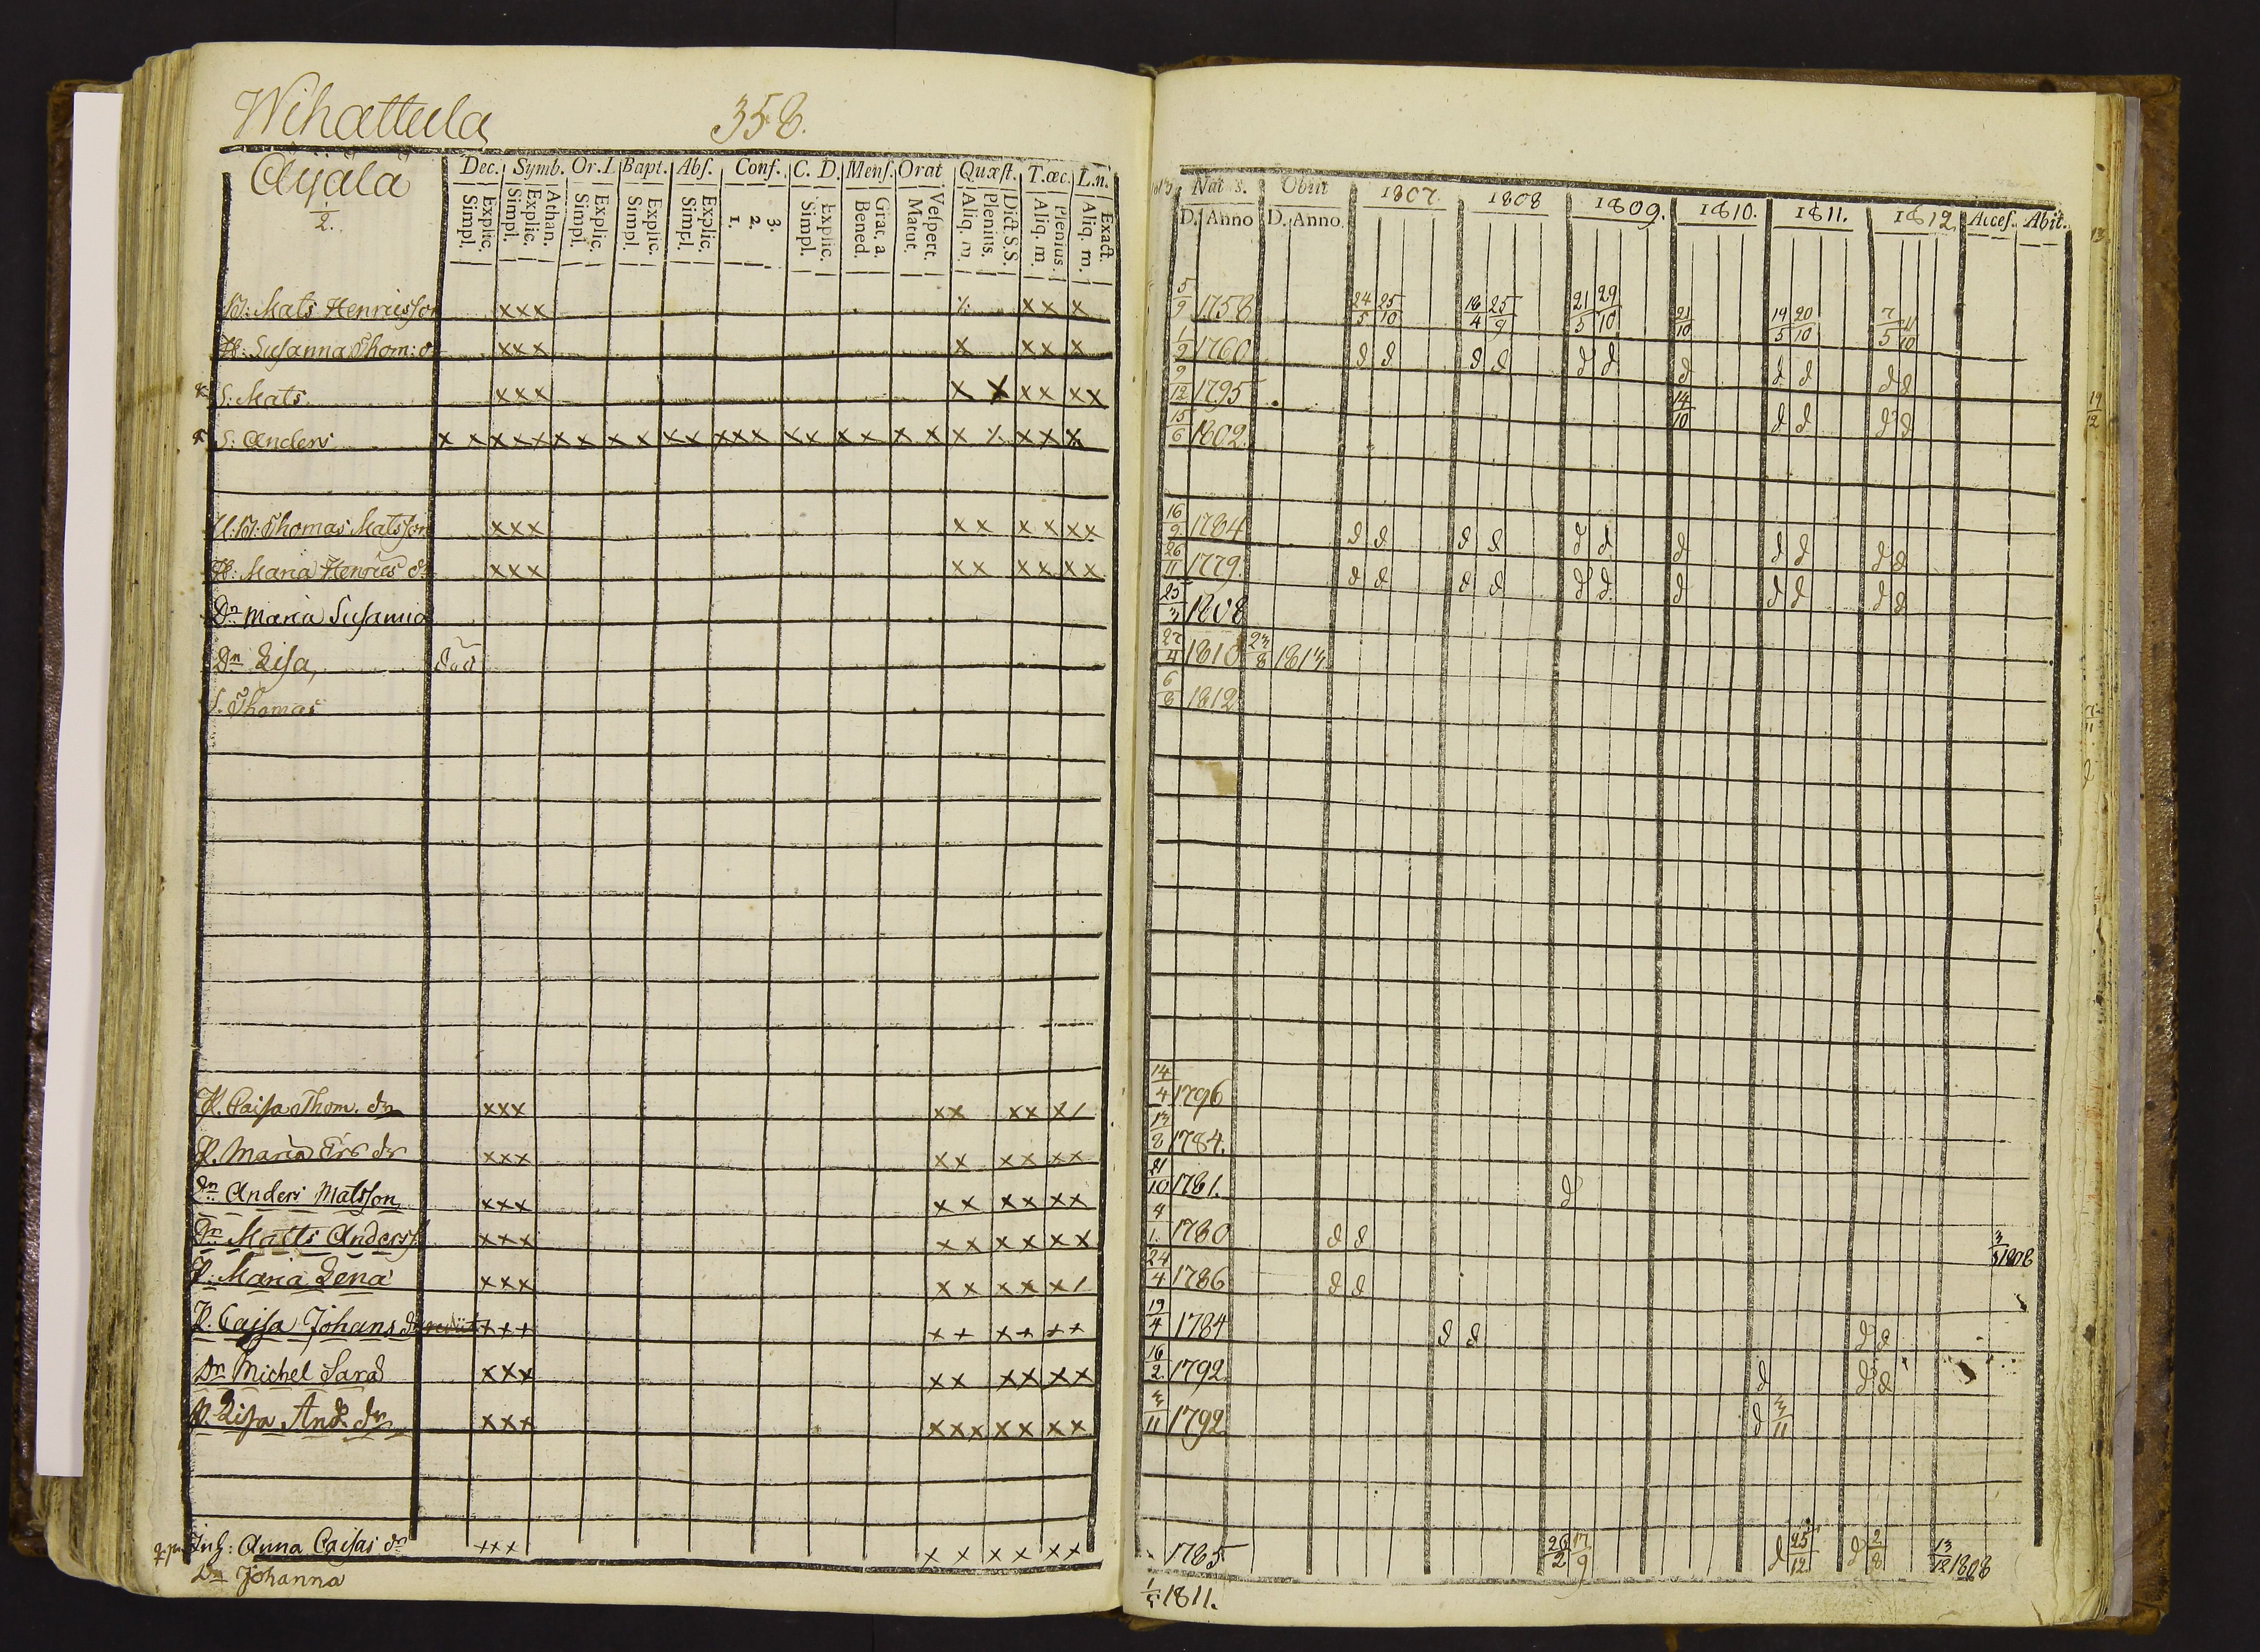 Wihattula 358.
Äijälä
1/2.
Dec. Symb. Or. Bapt. Abs. Conf. C. D. Mens. Orat Quæst. T.œc. L.n.
Explic. Simpl. Athan. Explic. Simpl. Explic. Simpl. Explic. Simpl. Explic. Simpl. 3. 2. 1. Explic. Simpl. Grat. a. Bened. Vespert. Matut. Dict S.S. Plenius. Aliq. m. Plenius. Aliq. m. Exact. Aliq. m.
Obiit 1807. 1808 1809. 1810. 1811. 1812 Acces. Abit.
D. Anno D. Anno.
Mats Henricsson xxx xx x 5/9 1758 24/5 25/10 18/4 25/9 21/5 29/10 21/10 19/5 20/10 7/5 11/10
H: Susanna Thom: d xxx x xx x 1/9 1760 d d d d d d d d d d d
S: Mats xxx x x xx xx 9/12 1795 14/10 d d d d
S: Anders x x xxx xx xx xx xxx xx xx x x x x xx x 15/6 1802.
Thomas Matsson xxx xx xx xx 16/9 1784 d d d d d d d d d d d
H: Maria Henrics dr xxx xx xx xx 26/11 1779. d d d d d d d d d d d
Dr Maria Susanna 25/3 1808
Dr Lisa, död 27/4 1810 23/8 1813
S. Thomas 6/8 1812
P. Caisa Thom. dr xxx xx xx x/ 14/4 1796
P. Maria dr xxx xx xx xx 13/8 1784.
Dr Anders Matsson xxx xx xx xx 21/10 1781. d
Dr Matts Anderss xxx xx xx xx 4/1 1780 d d 1808
P. Maria Lena xxx xx xx x/ 24/4 1786 d d
P. Cajsa Johans dr xxx xx xx xx 19/4 1784 d d d d
Dr Michel Sara xxx xx xx xx 16/2 1792. d d d
P. Lisa And. dr xxx xxx xx xx 3/11 1792 d 3/11
Inh: Anna Caisas dr xxx x x x x xx 1785 26/2 17/9 d 25/12 d 2/8 13/12 1808
Dr Johanna 1811.